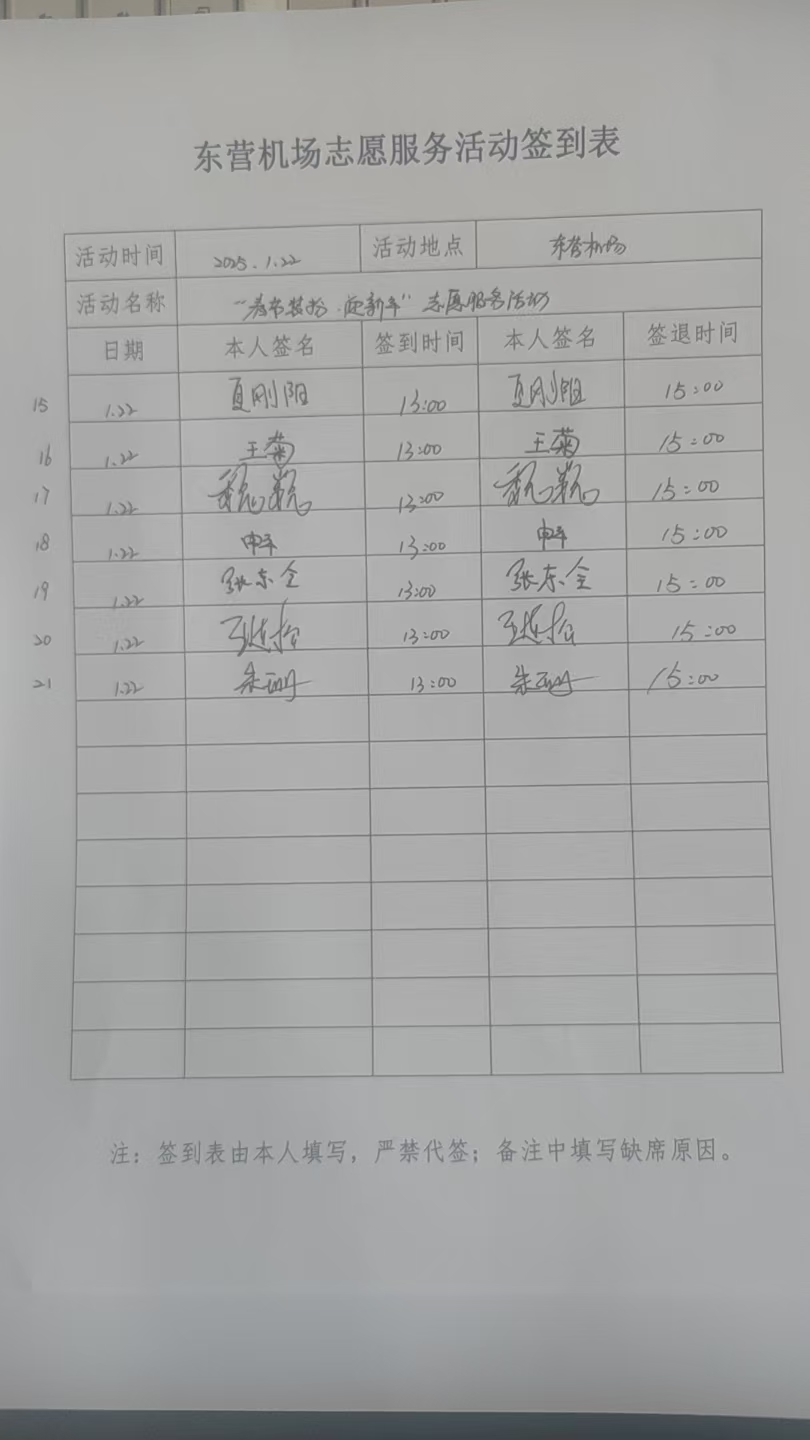 东营机场志愿服务活动签到表
活动时间 2025.1.22 活动地点 东营机场
活动名称 "春节装扮·迎新年"志愿服务活动
日期 本人签名 签到时间 本人签名 签退时间
15 1.22 夏刚阳 13:00 夏刚阳 15:00
16 1.22 王菊 13:00 王菊 15:00
17 1.22 魏巍 13:00 魏巍 15:00
18 1.22 13:00 15:00
19 1.22 张东全 13:00 张东全 15:00
20 1.22 13:00 15:00
21 1.22 朱 13:00 朱 15:00
注：签到表由本人填写，严禁代签；备注中填写缺席原因。